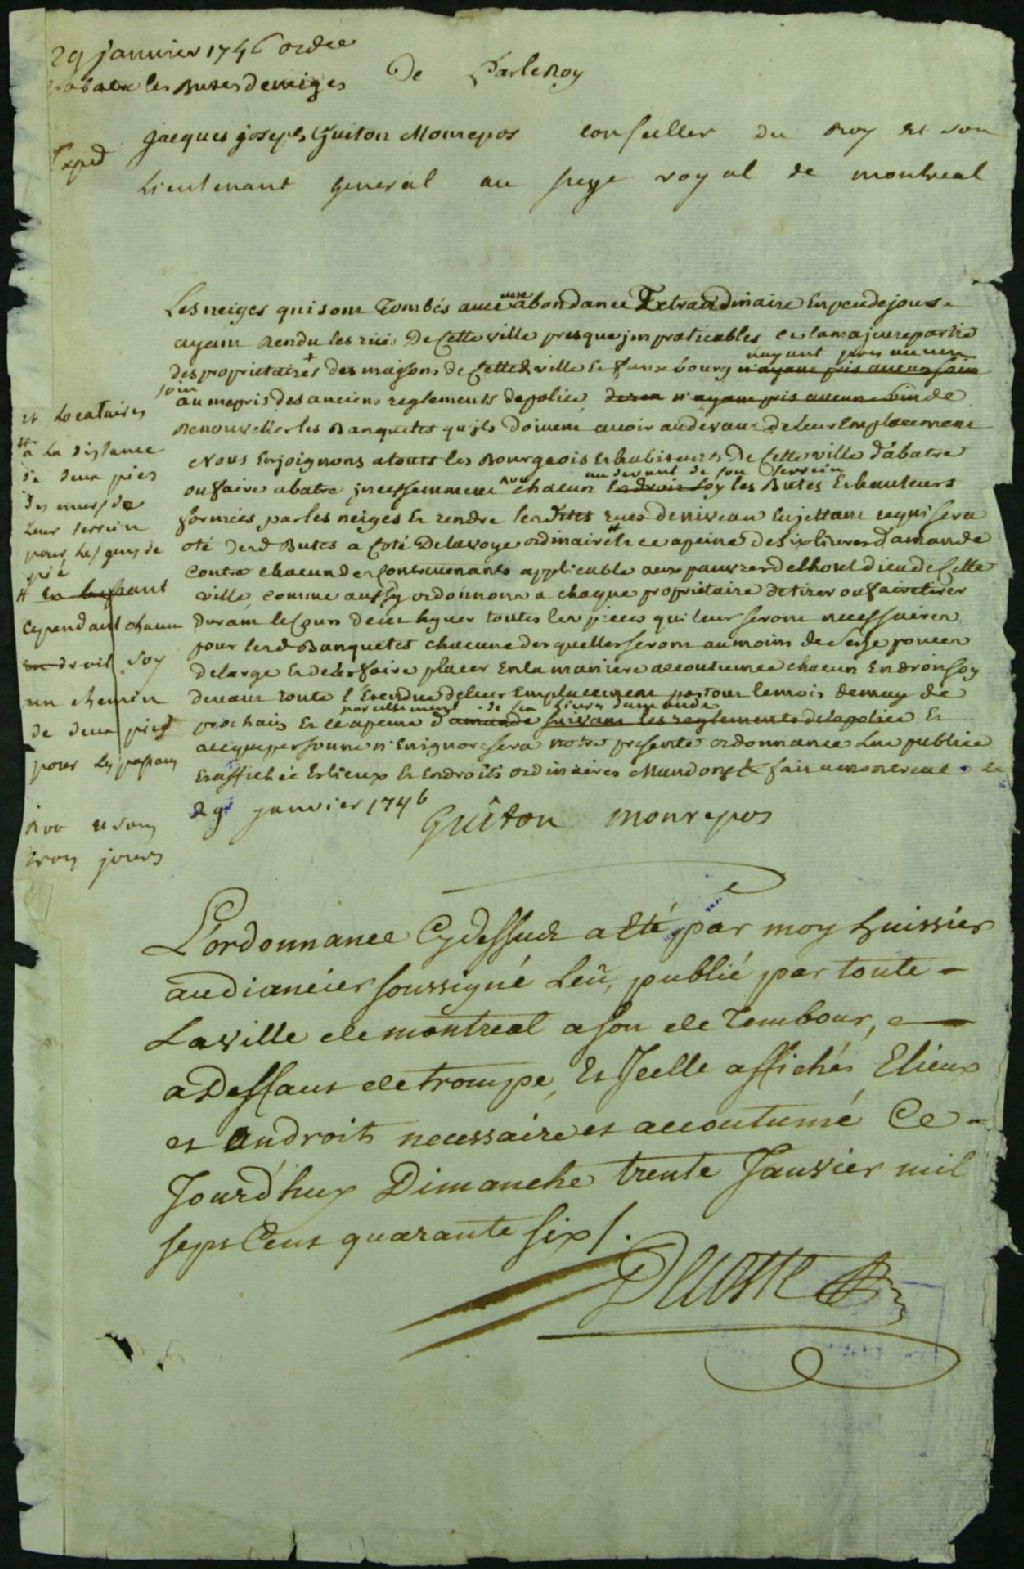 29 janvier 1746 ordre
dabatre les Butes de neiges
De Par le Roy
Exped
jacques joseph Guiton Monrepos conseiller du Roy et son
Lieutenant general au siege royal de montreal
Les neiges qui sont Tombés avec une abondance Extraordinaire En peu de jours
ayant Rendu les rues De Cette ville presque jmpraticables et la majeure partie
des proprietaires + des maisons de Cette d. ville Et faux bourg n'ayant pris aucun
n'ayant pris aucun soin
soin au mepris des anciens reglements de police, n'ayant pris aucun soin de
Renouveller les Banquettes qu'ils doivent avoir au devant de Leur Emplacement
Nous Enjoignons a touts les Bourgeois Et habitants De Cette ville d'abatre
au devant de son terrein
ou faire abatre jncessamment chacun Endroit soy les Butes Et hauteurs
formées par les neiges Et rendre lesdites rues de niveau En jettant ce qui sera
oté desd Butes a Coté De la voye ordinaire Et ce a peine de six livres d'amande
contre chacun des Contrevenants applicable aux pauvres de lhotel dieu de Cette
ville, comme aussy ordonnons a chaque proprietaire de tirer ou faire tirer
durant le Cours de cet hyver toutes les pieces qui leur seront necessaires
pour lesd Banquettes chacune desquelles seront au moins de seize pouces
de large Et de les faire placer En la maniere accoutumée chacun Endroit soy
devant toute l'Etendue de leur Emplacement par tout le mois de may
pareillement de six livres d'amande
prochain Et ce a peine d'amande suivant les reglements de la police Et
a ce que personne n'En ignore sera notre presente ordonnance Lue publiée
Et affichée Es lieux Et Endroits ordinaires Mandons &c fait a montreal le
29 janvier 1746
Guiton Monrepos
et Locataires
a La distance
de deux pies
des murs de
Leur terrein
pour Les gens de
pié
En laissant
Cependant chacun
Endroit soy
un chemin
de deux pieds
pour Les passans
trois jours
L'ordonnance Cy dessus a Eté par moy huissier
audiancier soussigné Leü, publié par toute
La ville de montreal a son de Tembour,
a Deffaut de trompe, Et Jcelle affichés Es lieux
et Endroits necessaire et accoutumé Ce
Jourd'huy Dimanche trente Janvier mil
sept Cent quarante six /.
Decoste